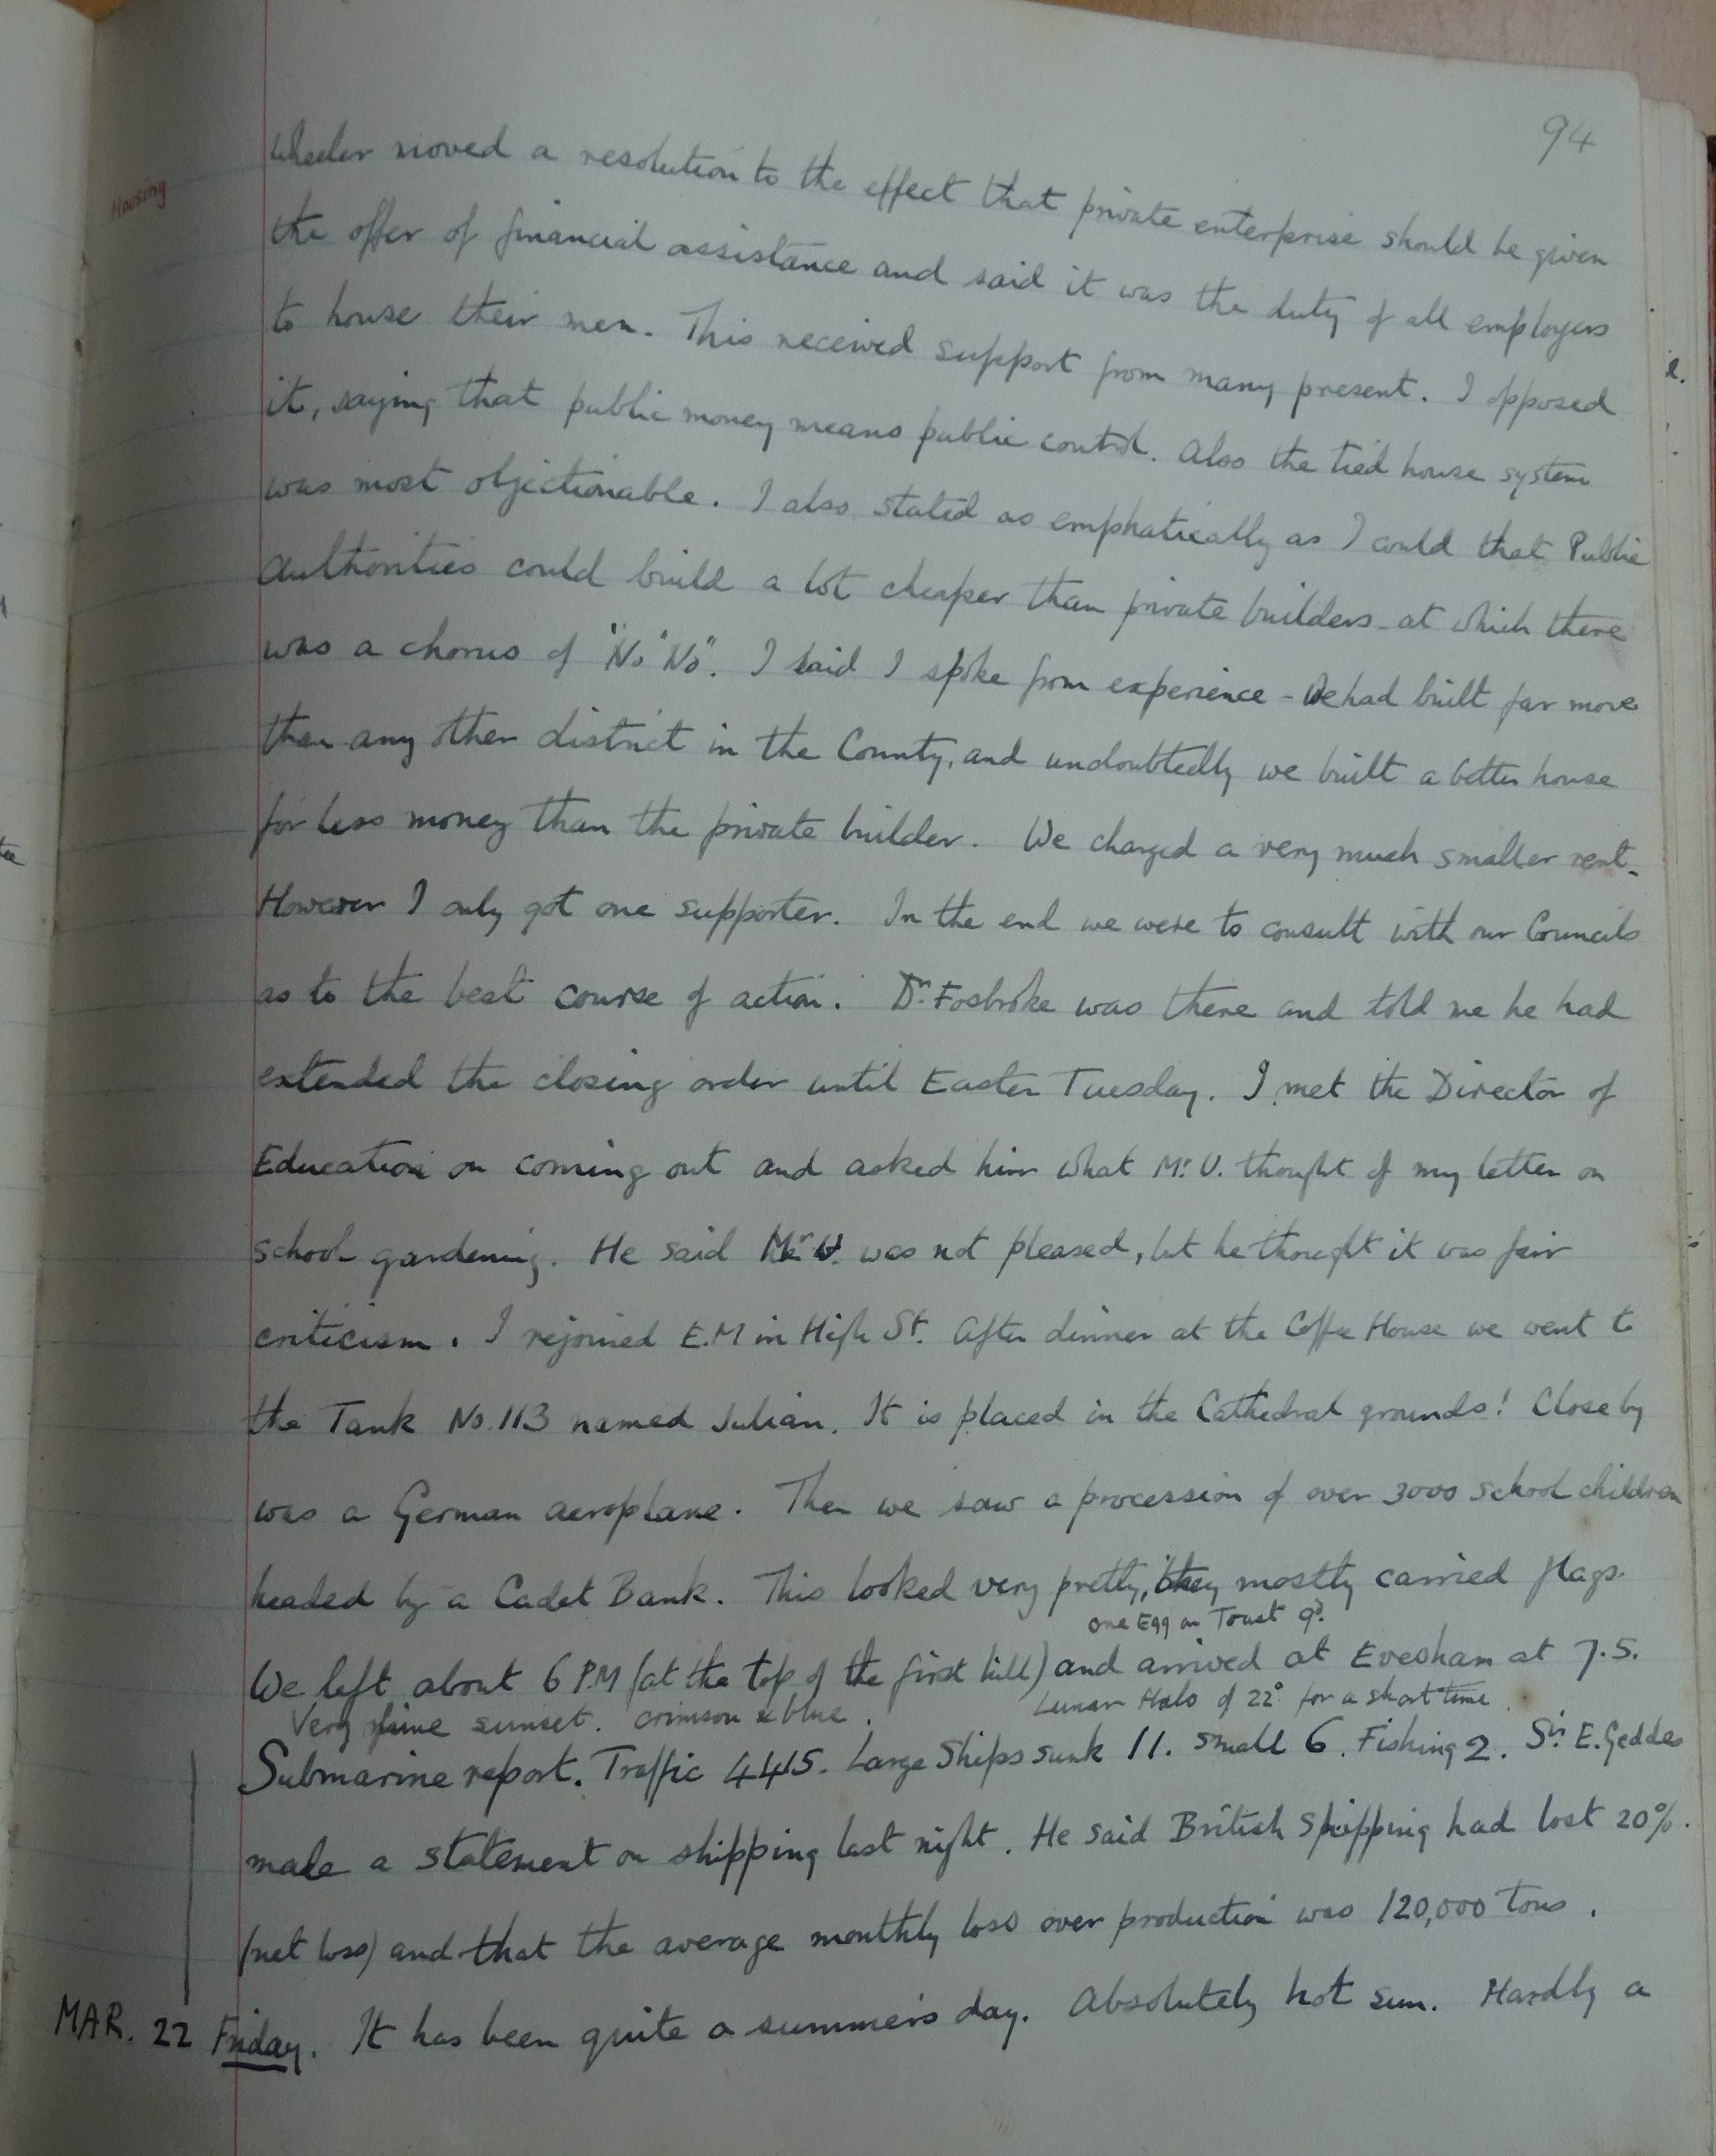 94
Housing
Wheeler moved a resolution to the effect that private enterprise should be given
the offer of financial assistance and said it was the duty of all employers
to house their men. This received support from many present. I opposed
it, saying that public money means public control. Also the tied house system
was most objectionable. I also stated as emphatically as I could that Public
Authorities could build a lot cheaper than private builders - at which there
was a chorus of "No" "No". I said I spoke from experience - We had built far more
than any other district in the County, and undoubtedly we built a better house
for less money than the private builder. We charged a very much smaller rent.
However I only got one supporter. In the end we were to consult with our Councils
as to the best course of action. Dr. Fosbroke was there and told me he had
extended the closing order until Easter Tuesday. I met the Director of
Education on coming out and asked him what Mr. V. thought of my letter on
school gardening. He said Mr V. was not pleased, but he thought it was fair
criticism. I rejoined E.M in High St. After dinner at the Coffee House we went to
the Tank No. 113 named Julian. It is placed in the Cathedral grounds! Close by
was a German aeroplane. Then we saw a procession of over 3000 school children
headed by a Cadet Bank. This looked very pretty, they mostly carried flags.
one Egg on Toast 9d.
We left about 6 P.M (at the top of the first hill) and arrived at Evesham at 7.5.
Very fine sunset. crimson & blue. Lunar Halo of 22° for a short time
Submarine report. Traffic 4415. Large Ships sunk 11. small 6. Fishing 2. Sir E. Geddes
made a statement on shipping last night. He said British Shipping had lost 20%.
(net loss) and that the average monthly loss over production was 120,000 tons.
MAR. 22 Friday. It has been quite a summer's day. Absolutely hot sun. Hardly a